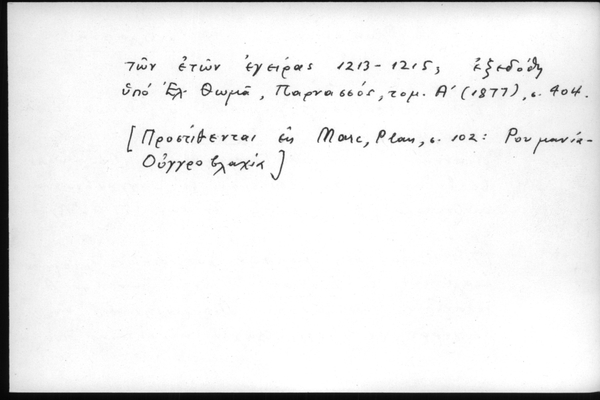 τῶν ἐτῶν ἐγείρας 1213-1215, ἐξεδόθη
ὑπό Ἐλ. Θωμᾶ, Παρνασσός, τομ. Α΄ (1877), σ. 404.
[Προστίθενται ἐκ Marc, Plan, σ. 102: Ρουμανία-
Οὐγγροβλαχία]